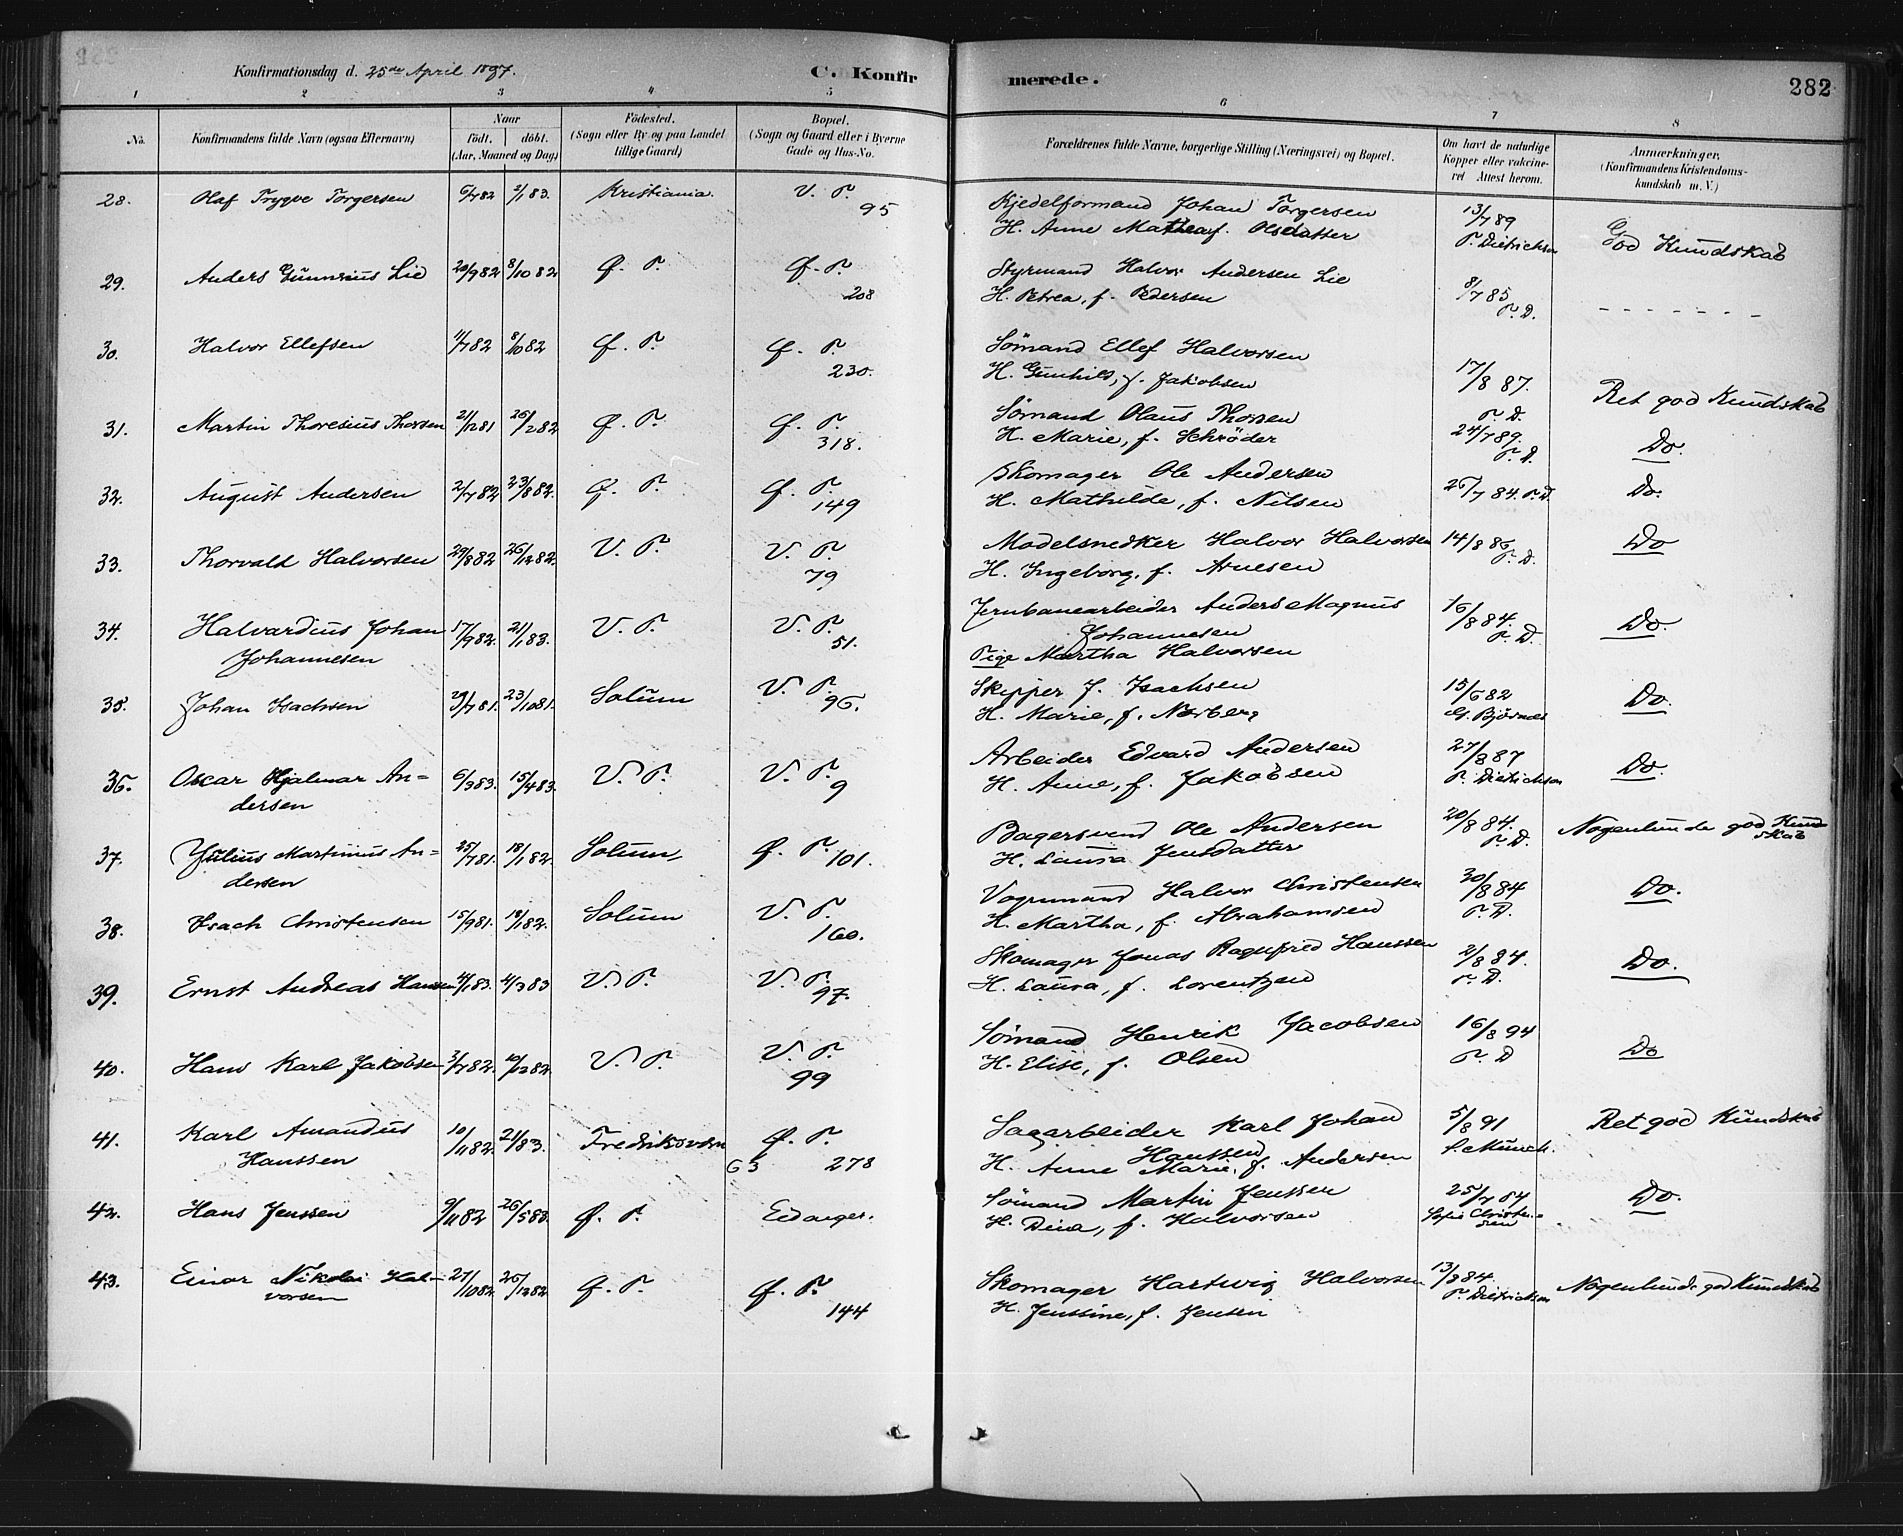 Konfirmationsdag d. 25de April 1897.
C. Konfirmerede.
282
1 2 3 4 5 6 7 8
No.
Konfirmandens fulde Navn (ogsaa Efternavn)
Naar
født. døbt.
(Aar, Maaned og Dag)
Fødested.
(Sogn eller By og paa Landet
tillige Gaard)
Bopæl.
(Sogn og Gaard eller i Byerne
Gade og Hus-No.
Forældrenes fulde Navne, borgerlige Stilling (Næringsvei) og Bopæl.
Om havt de naturlige
Kopper eller vakcine-
ret Attest herom.
Anmærkninger.
(Konfirmandens Kristendoms-
kundskab m. V.)
28. Olaf Trygve Torgersen 6/7 82 2/1 83. Kristiania. V. P. 95
Kjedelformand Johan Torgersen
H. Anne Mathea f. Olsdatter
13/7 89
P. Dietrichson
God Kundskab
29. Anders Gunnerius Lie 20/9 82 8/10 82 Ø. P. Ø. P. 208
Styrmand Halvor Andersen Lie
H. Petrea, f. Pedersen
8/7 85
P. D.
- - - - - - -
30. Halvor Ellefsen 11/7 82 8/10 82 Ø. P. Ø. P. 230.
Sømand Ellef Halvorsen
H. Gunhild, f. Jakobsen
17/8 87.
P. D.
Ret god Kundskab
31. Martin Thoresius Thorsen 21/12 81 26/2 82 Ø. P. Ø. P. 318.
Sømand Olaus Thorsen
H. Marie, f. Schrøder
24/7 89.
P. D.
Do.
32. August Andersen 2/7 82 23/8 82. Ø. P. Ø. P. 149
Skomager Ole Andersen
H. Mathilde, f. Nilsen
25/7 84. P. D.
Do.
33. Thorvald Halvorsen 29/8 82 26/12 82. V. P. V. P. 79
Modelsnedker Halvor Halvorsen
H. Ingeborg, f. Arnesen
14/8 86
P. D.
Do
34. Halvardius Johan
Johannesen
17/9 82. 21/1 83. V. P. V. P. 51.
Jernbanearbeider Anders Magnus
Johannesen
Pige Martha Halvorsen
16/8 84.
P. D.
Do.
35. Johan Isachsen 29/7 81. 23/10 81. Solum V. P. 96.
Skipper J. Isachsen
H. Marie, f. Norberg
15/6 82
Do.
36. Oscar Hjalmar An=
dersen
6/3 83. 15/4 83. V. P. V. P. 9
Arbeider Edvard Andersen
H. Anne, f. Jakobsen
27/8 87
P. Dietrichson
Do.
37. Julius Martinius An=
dersen
25/7 81. 18/1 82. Solum, Ø. P. 101.
Bagersvend Ole Andersen
H. Laura Jensdatter
20/8 84.
P. D.
Nogenlunde god Kund
skab
38. Isach Christensen 15/9 81. 18/1 82. Solum V. P. 160.
Vognmand Halvor Christensen
H. Martha, f. Abrahamsen
30/8 84
P. D.
Do.
39. Ernst Andreas Hanssen 4/1 83. 4/3 83 V. P. V. P. 97.
Skomager Jonas Ragnfred Hanssen
H. Laura, f. Lorentzen
2/8 84.
P. D.
Do.
40. Hans Karl Jakobsen 3/7 82. 10/12 82. V. P. V. P. 99
Sømand Henrik Jacobsen
H. Elise, f. Olsen
16/8 94
P. D
Do
41. Karl Amandus
Hanssen
10/11 82. 21/ 83. Fredriksværn Ø. P.
63 278
Sagarbeider Karl Johan
Hanssen
H. Anne Marie, f. Andersen
5/8 91
S. Münch.
Ret god Kundskab
42. Hans Jenssen 9/11 82 26/5 83. Ø. P. Eidanger.
Sømand Martin Jenssen
H. Dina, f. Halvorsen
25/7 84
Sofie Christen=
sen
Do.
43. Einar Nikolai Hal-
vorsen
27/10 82 26/12 82 Ø. P. Ø. P. 144
Skomager Hartwig Halvorsen
H. Jenssine, f. Jensen
13/8 84.
P. Dietrichson
Nogenlunde god Kundskab